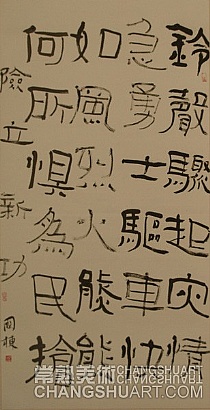 鈴聲驟起灾情
急勇士驅車动
如風烈火熊熊
何所惧為民搶
險立新功
常熟美術
CHANGSHUART.COM